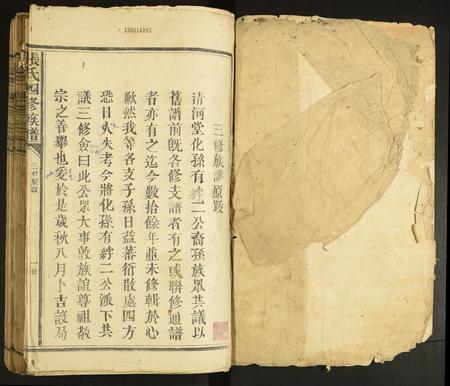 130614093
三修族譜原跋
清河堂化孫有紳二公裔孫族眾共議以
舊譜前旣各修支譜者有之或聯修通譜
者亦有之迄今數拾餘年並未修輯於心
歉然我等各支子孫日益蕃衍散處四方
恐日久失考今將化孫有紳二公派下共
議三修僉曰此公眾大事敦族誼尊祖敬
宗之善舉也爰於是歲秋八月卜吉設局
張氏四修族譜
三修原跋
一